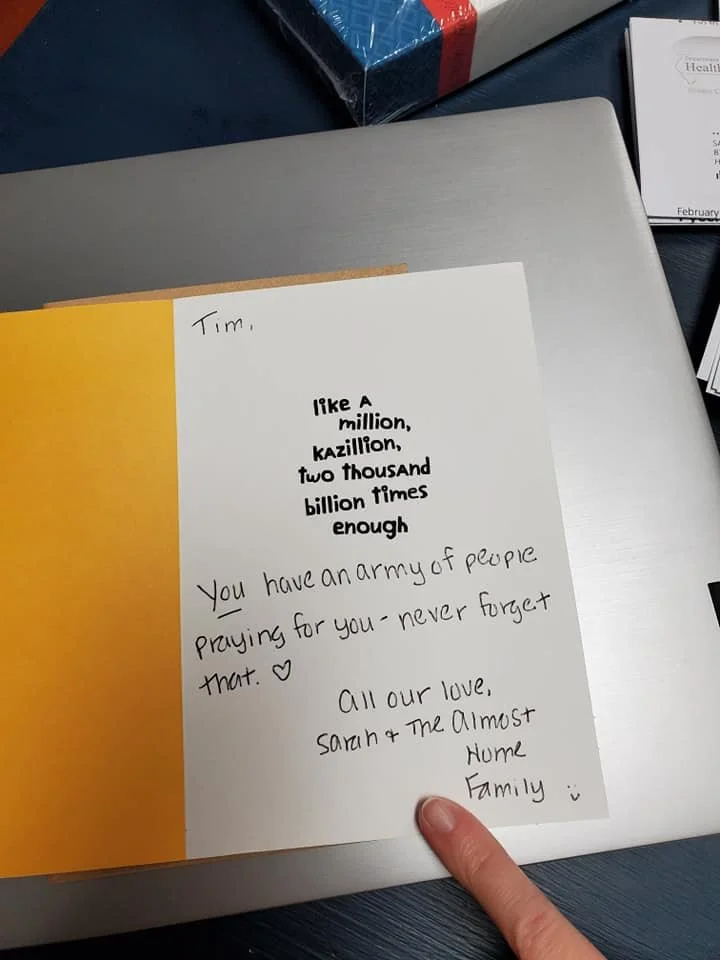 Health
February
Tim,
like A
million,
kAzillion,
two thousAnd
billion times
enough
You have an army of people
praying for you - never forget
that. ♡
All our love,
Sarah + The Almost
Home
Family :)